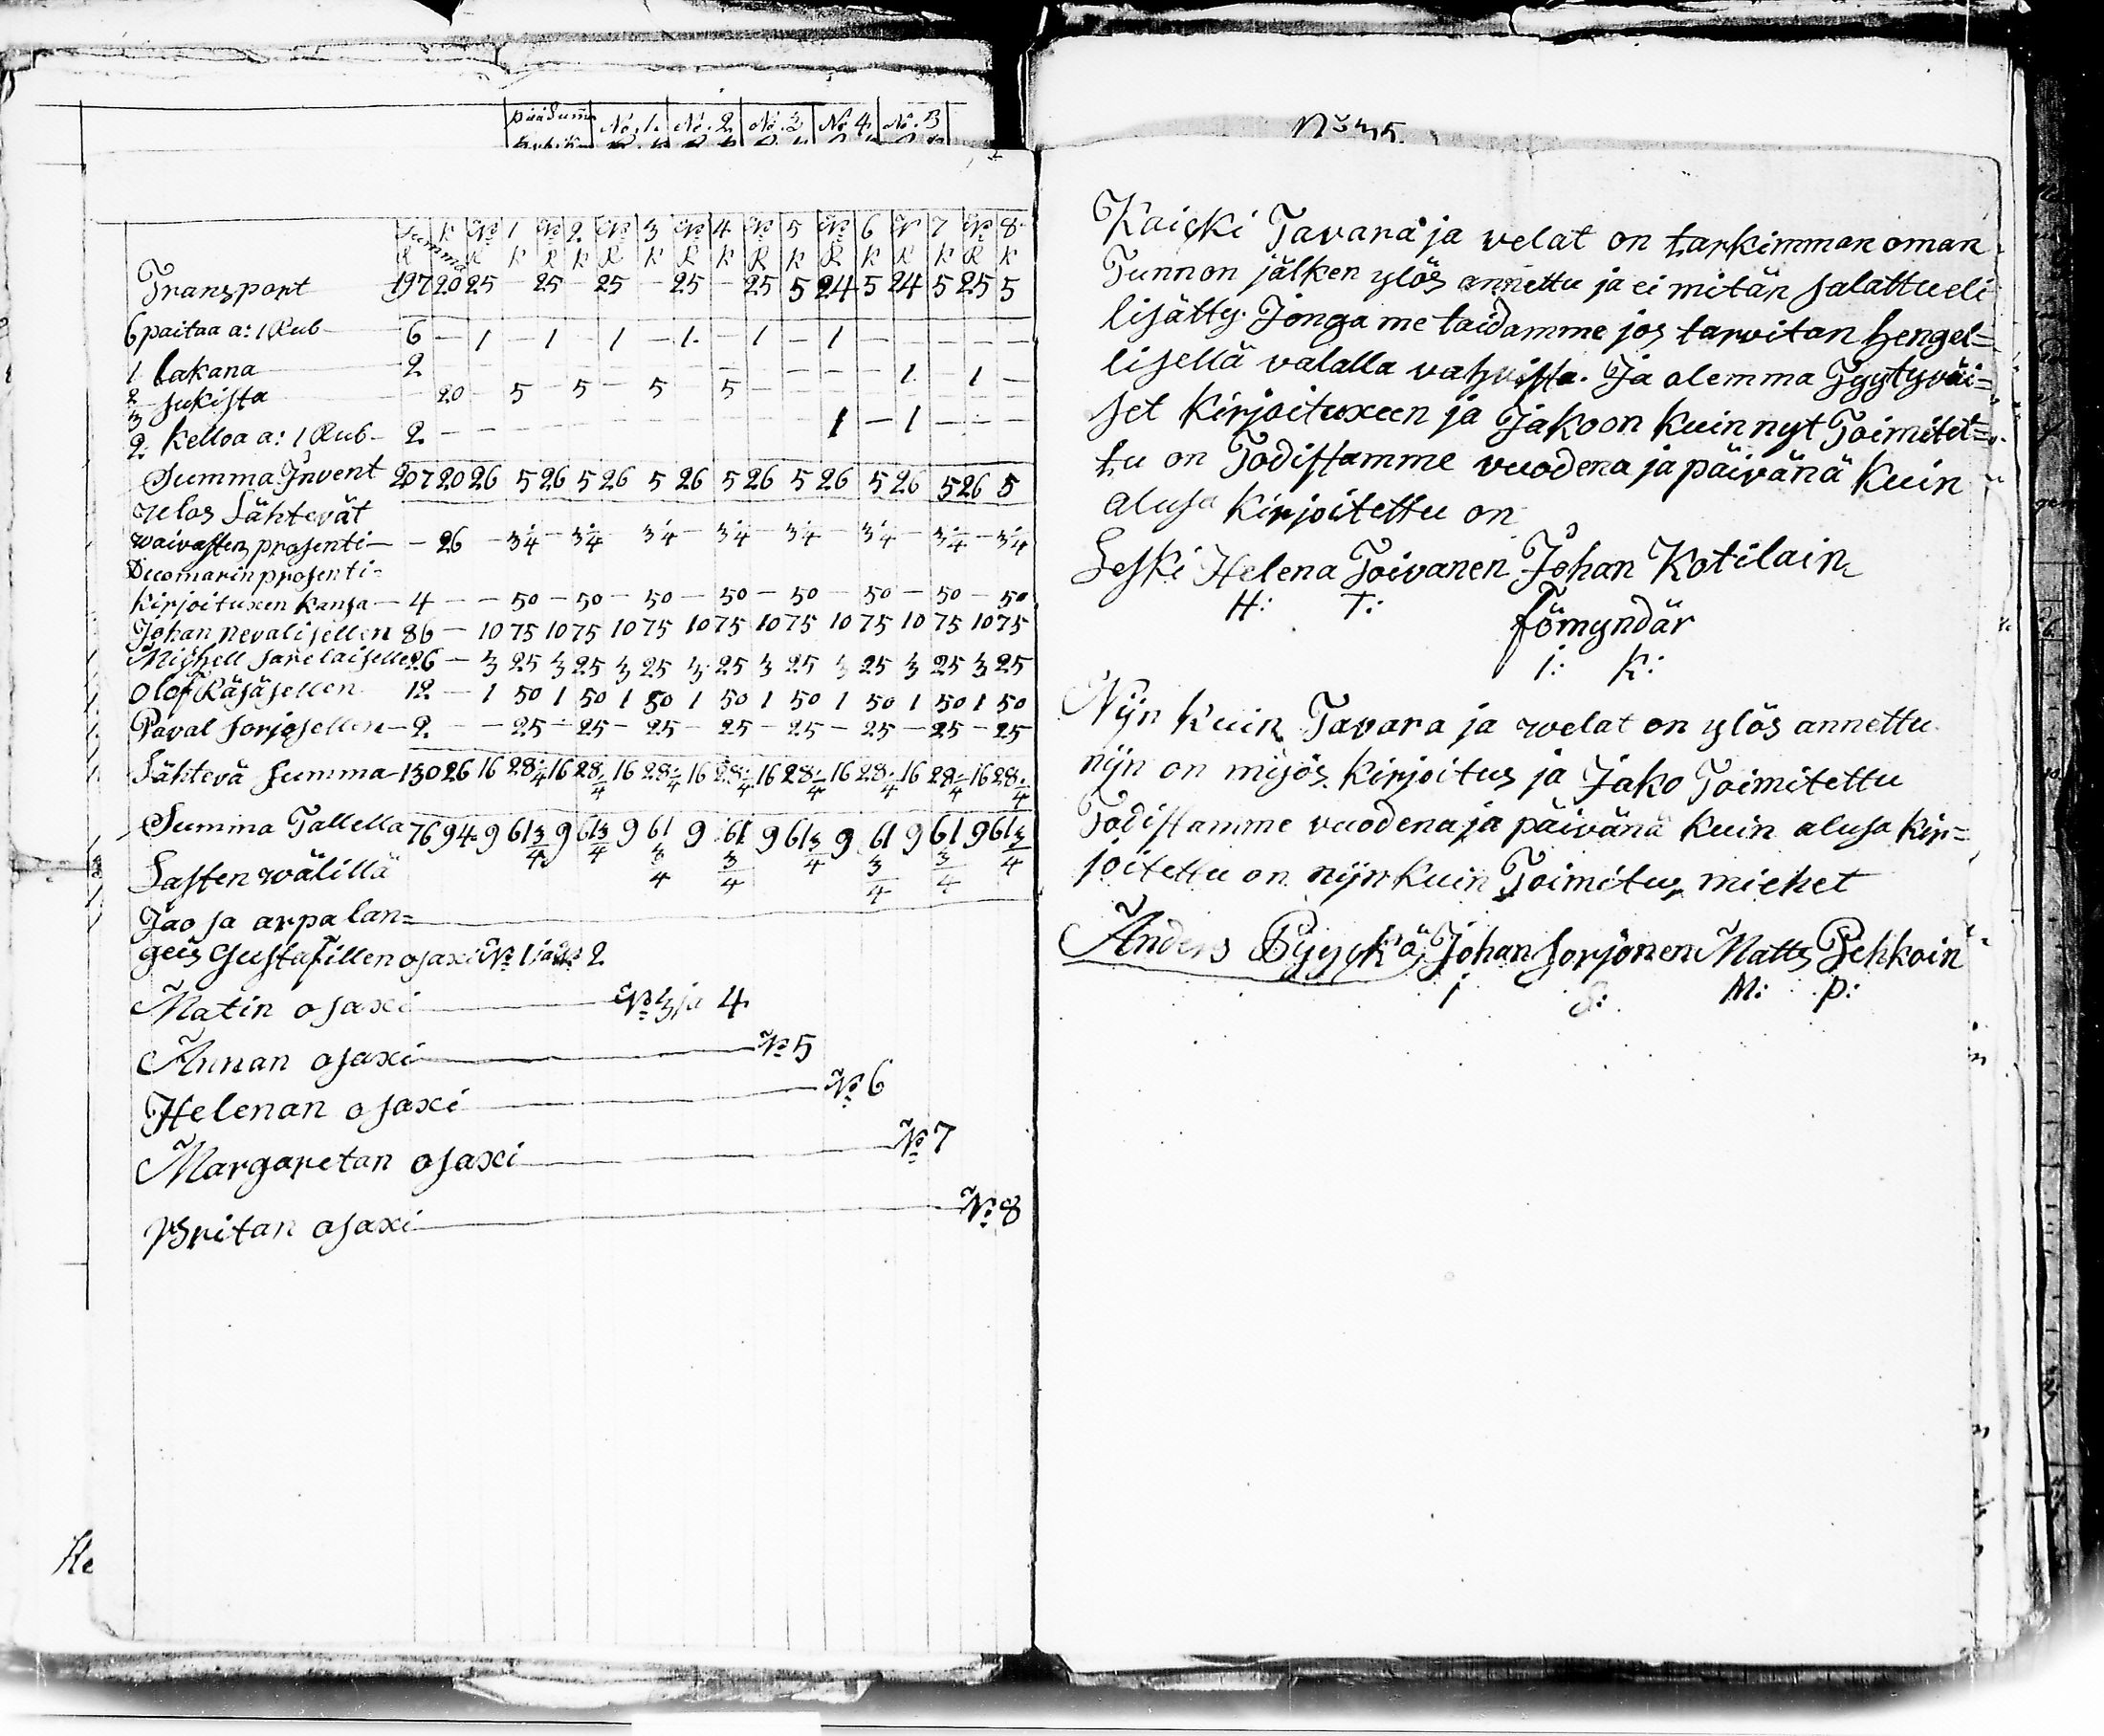 No. 1. No. 2 No. 3 No 4 No.
Summa R k No 1 No 2 No 3 No 4 No 5 No 6 No 7 No 8
R k R k R k R k R k R k R k R k
Transport 197 20 25 – 25 – 25 – 25 – 25 5 24 5 24 5 25 5
6 paitaa a: 1 Rub 6 – 1 – 1 – 1 – 1 – 1 – 1 – – – – –
1 lakana 2 – – – – – – – – – – – – – 1 – 1 –
2 sukista – 20 – 5 – 5 – 5 – 5 – – – – – – – –
3
2 kelloa a: 1 Rub 2 – – – – – – – – – – – 1 – 1 – – –
Summa Invent 207 20 26 5 26 5 26 5 26 5 26 5 26 5 26 5 26 5
ulos Lähtevät
waivasten prosenti – 26 – 3¼ – 3¼ – 3¼ – 3¼ – 3¼ – 3¼ – 3¼ – 3¼
Duomarin prosenti=
Kirjoituxen kansa 4 – – 50 – 50 – 50 – 50 – 50 – 50 – 50 – 50
Johan nevalisellen 86 – 10 75 10 75 10 75 10 75 10 75 10 75 10 75 10 75
Mihhell 26 – 3 25 3 25 3 25 3 25 3 25 3 25 3 25 3 25
Olof Räsäsellen 12 – 1 50 1 50 1 50 1 50 1 50 1 50 1 50 1 50
Paval sorjosellen 2 – – 25 – 25 – 25 – 25 – 25 – 25 – 25 – 25
Lähtevä summa 130 26 16 28¼ 16 28¼ 16 28¼ 16 28¼ 16 28¼ 16 28¼ 16 28¼ 16 28¼
Summa Tallella 76 94 9 61¾ 9 61¾ 9 61¾ 9 61¾ 9 61¾ 9 61¾ 9 61¾ 9 61¾
Lasten wälillä
Jao ja arpa lan=
geis Gusta osaxi No 1 ja No 2
Matin osaxi No 3 ja 4
Annan osaxi No 5
Helenan osaxi No 6
Margaretan osaxi No 7
Britan osaxi No 8
Kaicki Tavara ja velat on tarkimman oman
Tunnon jälken ylös annettu ja ei mitän salattu eli
lisätty. Jonga me taidamme jos tarvitan hengel=
lisellä valalla vahvista. Ja olemma Tyytyväi=
set Kirjoituxeen ja Jakoon kuin nyt Toimitet=
tu on Todistamme vuodena ja päivänä kuin
alusa kirjoitettu on
Leski Helena Toivanen Johan Kotilain
H: T: fömyndär
I: K:
Nijn kuin Tavara ja welat on ylös annettu
nijn on myös kirjoitus ja Jako Toimitettu
Todistamme vuodena ja päivänä kuin alusa kir=
joitettu on nijn kuin Toimitus miehet
Anders Pyyckö Johan Sorjonen Matts Pehkoin
I S: M: P: